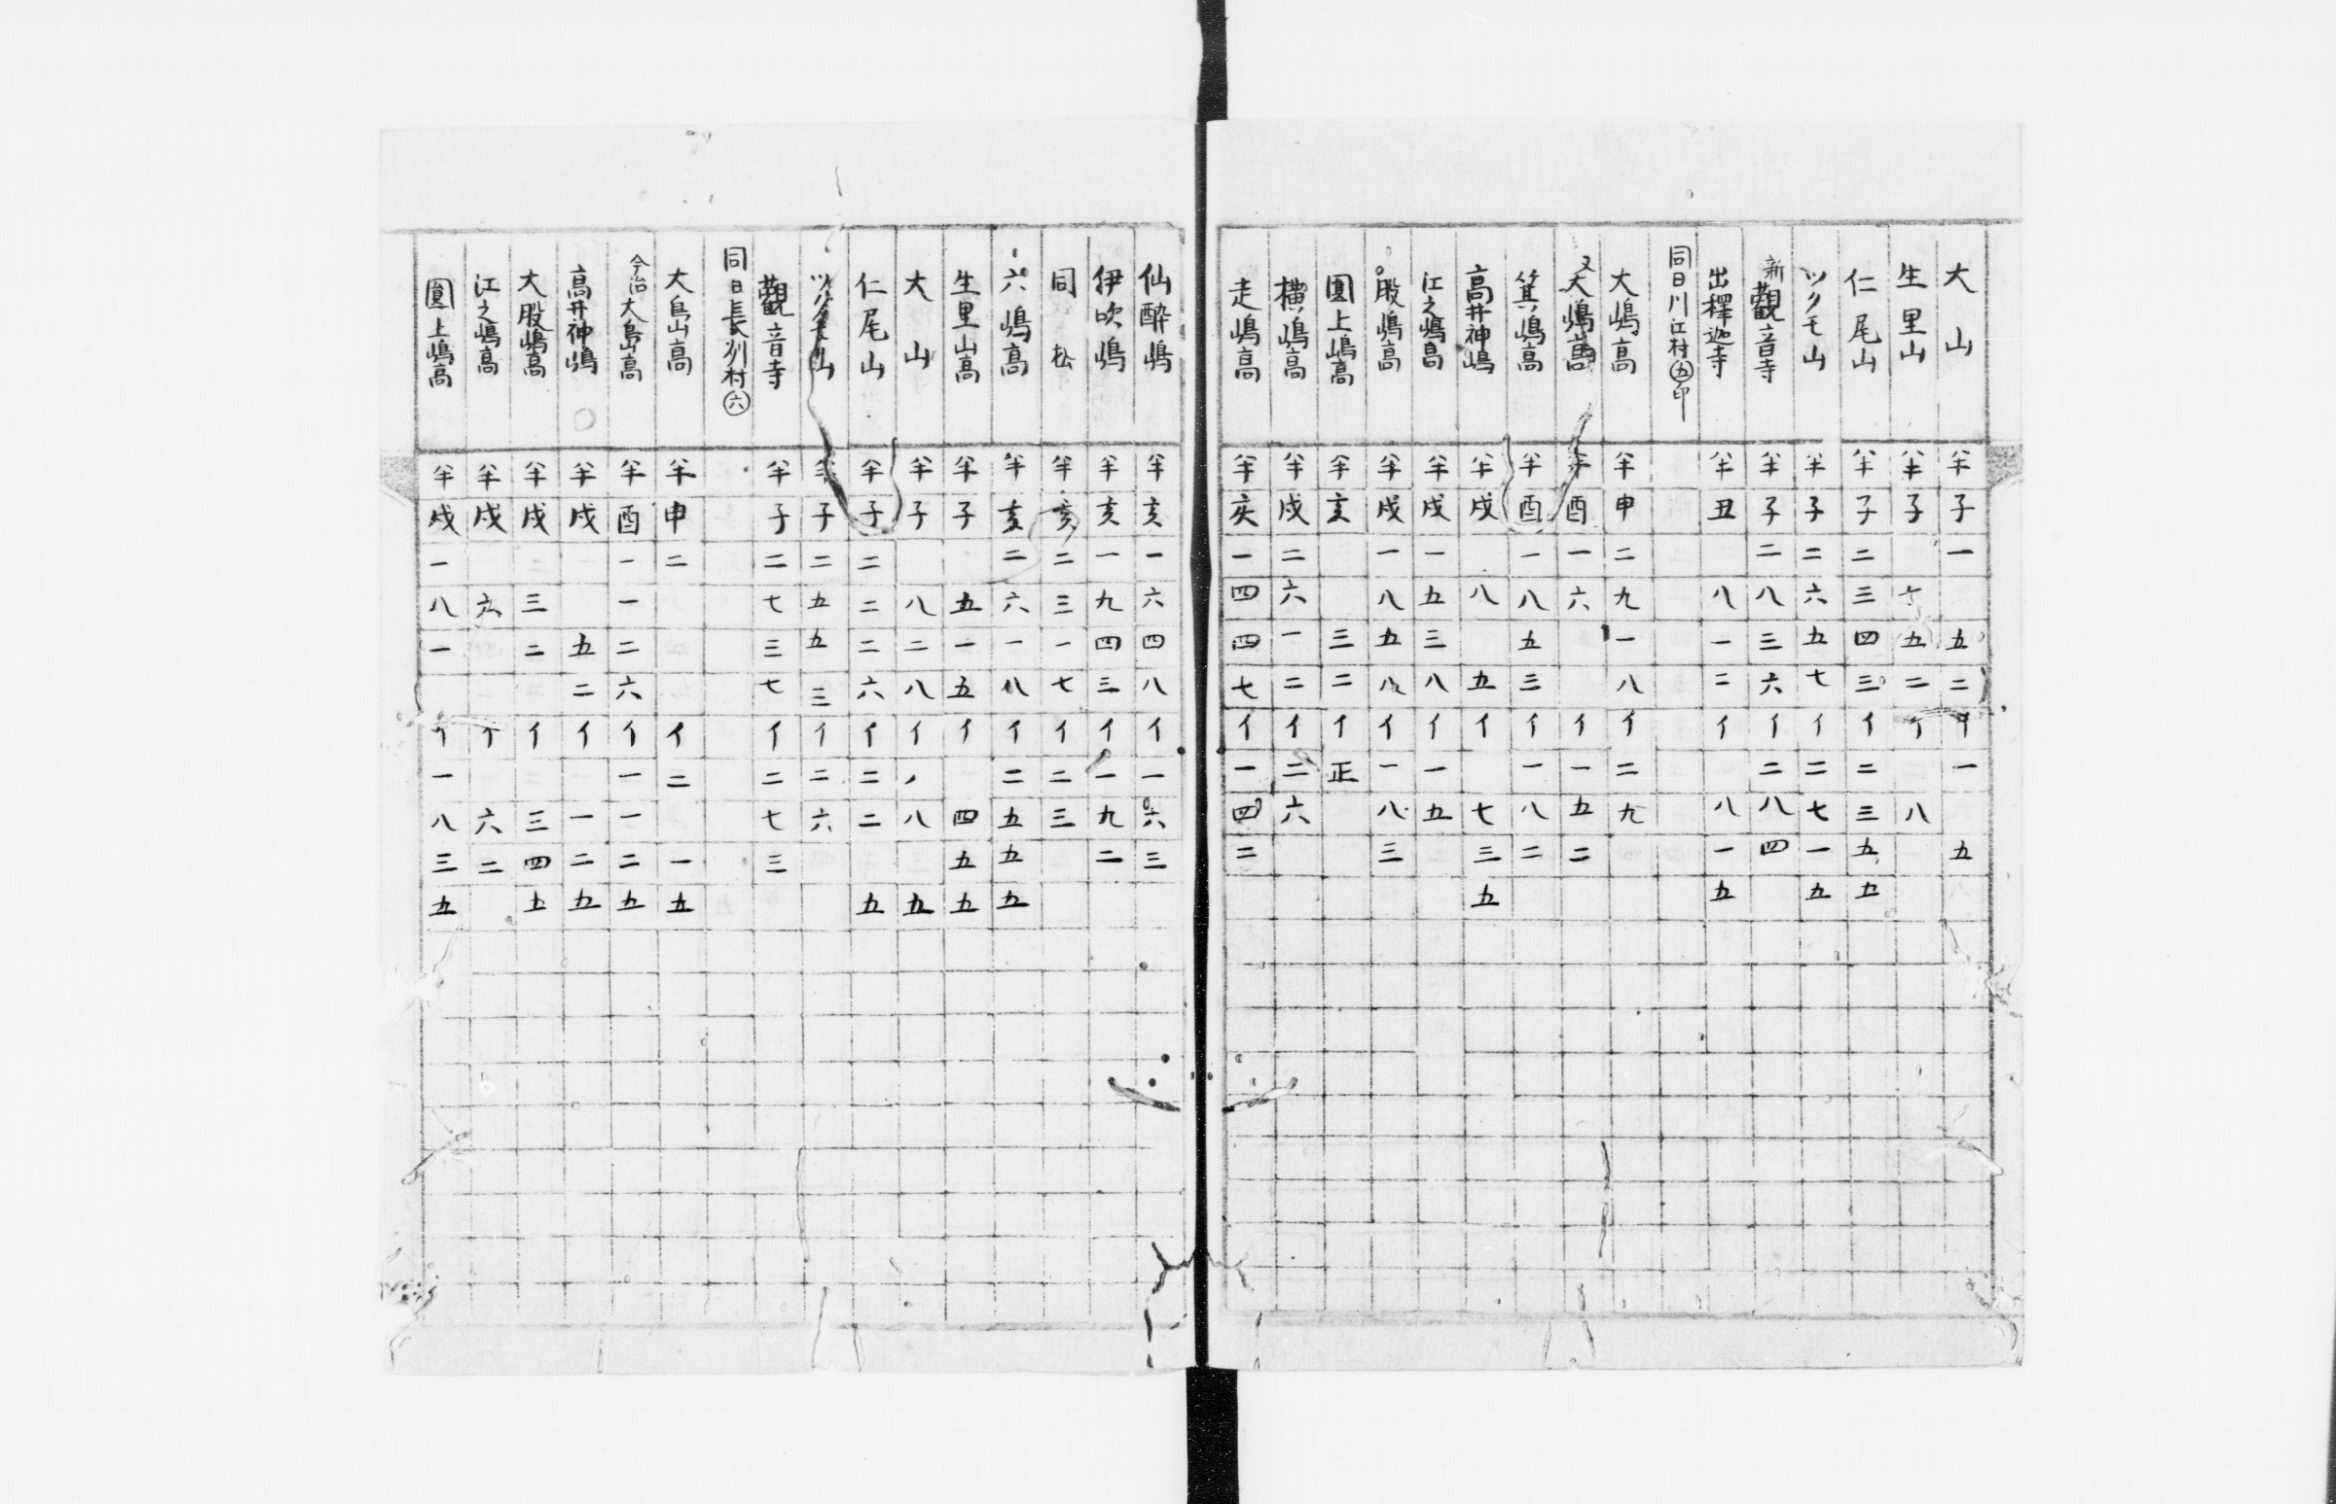 大山 半子一 五二イ一 五
生里山 半子 七五二イ 八
仁尾山 半子二三四三イ二三五五
ツクモ山 半子二六五七イ二七一五
新觀音寺 半子二八三六イ二八四
出釋迦寺 半丑 八一二イ 八一五
同日川江村㊄印
大嶋高 半申二九一八イ二九
又大嶋高 半酉一六 イ一五二
箕嶋高 半酉一八五三 一八二
高井神嶋 半戌 八 五イ 七三五
江之嶋高 半戌一五三八イ一五
股嶋高 半戌一八五八イ一八三
圓上嶋高 半亥 三二イ正
横嶋高 半戌二六一二イ二六
走嶋高 半亥一四四七イ一四二
仙酔嶋 半亥一六四八イ一六三
伊吹嶋 半亥一九四三イ一九二
同 松 半亥二三一七イ二三
六嶋高 半亥二六一八イ二五五五
生里山高 半子 五一五イ 四五五
大山 半子 八二八イ 八 五
仁尾山 半子二二二六イ二二 五
ツクモ山 半子二五五三イ二六
觀音寺 半子二七三七イ二七三
同日長洲村㊅
大島山高 半申二 イ二 一五
今治大島高 半酉一一二六イ一一二五
高井神嶋 半戌 五二イ 一二五
大股嶋高 半戌 三二 イ 三四五
江之嶋高 半戌 六 イ 六二
圓上嶋高 半戌一八一 イ一八三五